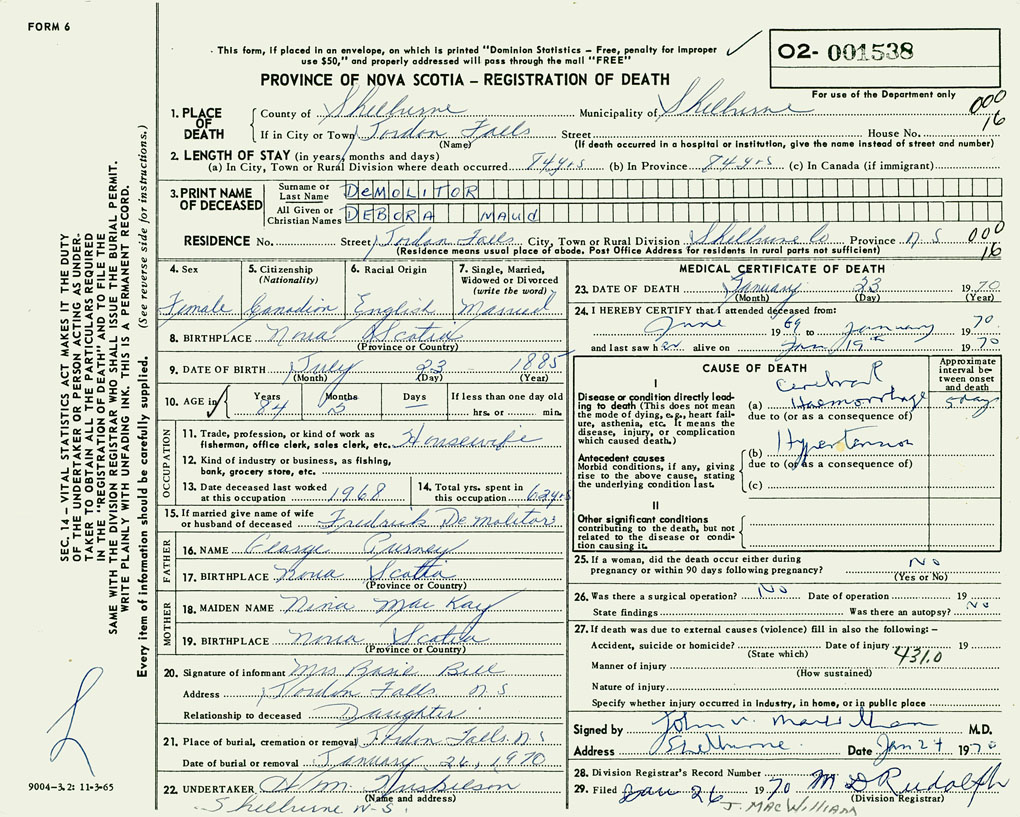 FORM 6
This form, if placed in an envelope, on which is printed "Dominion Statistics – Free, penalty for improper
use $50," and properly addressed will pass through the mail "FREE"
O2- 001538
PROVINCE OF NOVA SCOTIA – REGISTRATION OF DEATH
For use of the Department only
1. PLACE OF DEATH
County of Shelburne Municipality of Shelburne 000
If in City or Town Jordon Falls Street House No. 16
(Name) (If death occurred in a hospital or institution, give the name instead of street and number)
2. LENGTH OF STAY (in years, months and days)
(a) In City, Town or Rural Division where death occurred 84 yrs (b) In Province 84 yrs (c) In Canada (if immigrant)
3. PRINT NAME OF DECEASED
Surname or Last Name DeMOLITOR
All Given or Christian Names DEBORA MAUd
RESIDENCE No. Street Jordon Falls City, Town or Rural Division Shelburne Co Province N.S 000
(Residence means usual place of abode. Post Office Address for residents in rural parts not sufficient) 16
4. Sex
Female
5. Citizenship
(Nationality)
Canadian
6. Racial Origin
English
7. Single, Married,
Widowed or Divorced
(write the word)
Married
8. BIRTHPLACE Nova Scotia
(Province or Country)
9. DATE OF BIRTH July 23 1885
(Month) (Day) (Year)
10. AGE in Years Months Days If less than one day old
84 5 — hrs. or min.
OCCUPATION
11. Trade, profession, or kind of work as
fisherman, office clerk, sales clerk, etc. Housewife
12. Kind of industry or business, as fishing,
bank, grocery store, etc.
13. Date deceased last worked
at this occupation 1968
14. Total yrs. spent in
this occupation 62 yrs
15. If married give name of wife
or husband of deceased Fredrick Demolitor
FATHER
16. NAME George Purney
17. BIRTHPLACE Nova Scotia
(Province or Country)
MOTHER
18. MAIDEN NAME Nina Mac Kay
19. BIRTHPLACE Nova Scotia
(Province or Country)
20. Signature of informant Mrs Basil Bill
Address Jordon Falls N S
Relationship to deceased Daughter
21. Place of burial, cremation or removal Jordon Falls N.S
Date of burial or removal January 26, 1970
22. UNDERTAKER Wm Huskilson
(Name and address)
Shelburne N.S.
MEDICAL CERTIFICATE OF DEATH
23. DATE OF DEATH January 23 1970
(Month) (Day) (Year)
24. I HEREBY CERTIFY that I attended deceased from:
June 1969 to January 1970
and last saw her alive on Jan 19th 1970
CAUSE OF DEATH
Approximate interval between onset and death
I
Disease or condition directly leading to death (This does not mean the mode of dying, e.g., heart failure, asthenia, etc. It means the disease, injury, or complication which caused death.)
Cerebral
(a) Haemorrhage 5 day
due to (or as a consequence of)
Antecedent causes
Morbid conditions, if any, giving rise to the above cause, stating the underlying condition last.
Hypertension
(b)
due to (or as a consequence of)
(c)
II
Other significant conditions
contributing to the death, but not related to the disease or condition causing it.
25. If a woman, did the death occur either during
pregnancy or within 90 days following pregnancy? No
(Yes or No)
26. Was there a surgical operation? No Date of operation 19
State findings Was there an autopsy? No
27. If death was due to external causes (violence) fill in also the following: –
Accident, suicide or homicide? Date of injury 19
(State which) 431.0
Manner of injury
(How sustained)
Nature of injury
Specify whether injury occurred in industry, in home, or in public place
Signed by John M.D.
Address Shelburne Date Jan 24 1970
28. Division Registrar's Record Number
29. Filed Jan 26 1970 M D Rudolph
(Division Registrar)
J. MacWilliam
SEC. 14 – VITAL STATISTICS ACT MAKES IT THE DUTY
OF THE UNDERTAKER OR PERSON ACTING AS UNDER-
TAKER TO OBTAIN ALL THE PARTICULARS REQUIRED
IN THE "REGISTRATION OF DEATH" AND TO FILE THE
SAME WITH THE DIVISION REGISTRAR WHO SHALL ISSUE THE BURIAL PERMIT.
WRITE PLAINLY WITH UNFADING INK. THIS IS A PERMANENT RECORD.
Every item of information should be carefully supplied. (See reverse side for instructions.)
9004-3.2: 11-3-65